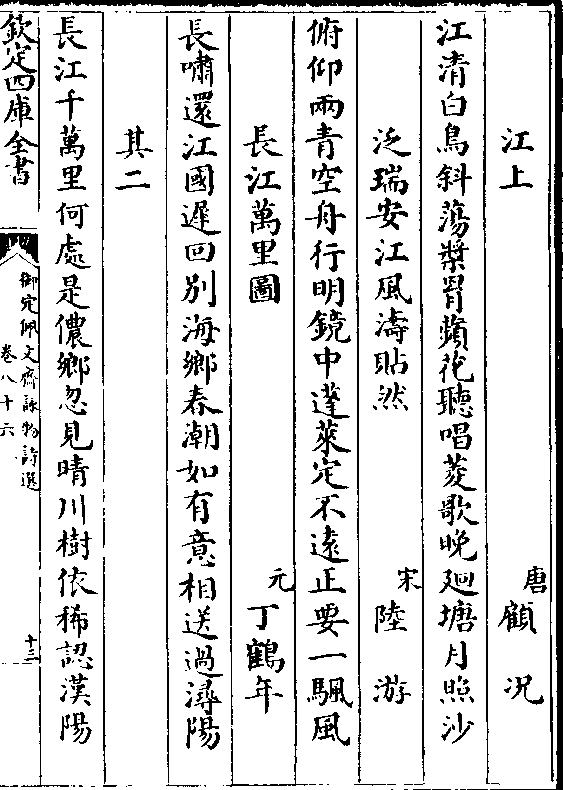 江上　唐 顧况
江清白鳥斜蕩槳罥蘋花聽唱菱歌晚廻塘月照沙
泛瑞安江風濤貼然　宋 陸游
俯仰兩青空舟行明鏡中蓬萊定不遠正要一颿風
長江萬里圖　元 丁鶴年
長嘯還江國遲回别海鄉春潮如有意相送過潯陽
其二
長江千萬里何處是儂鄉忽見晴川樹依稀認漢陽
欽定四庫全書
御定佩文齋詠物詩選
卷八十六
十三